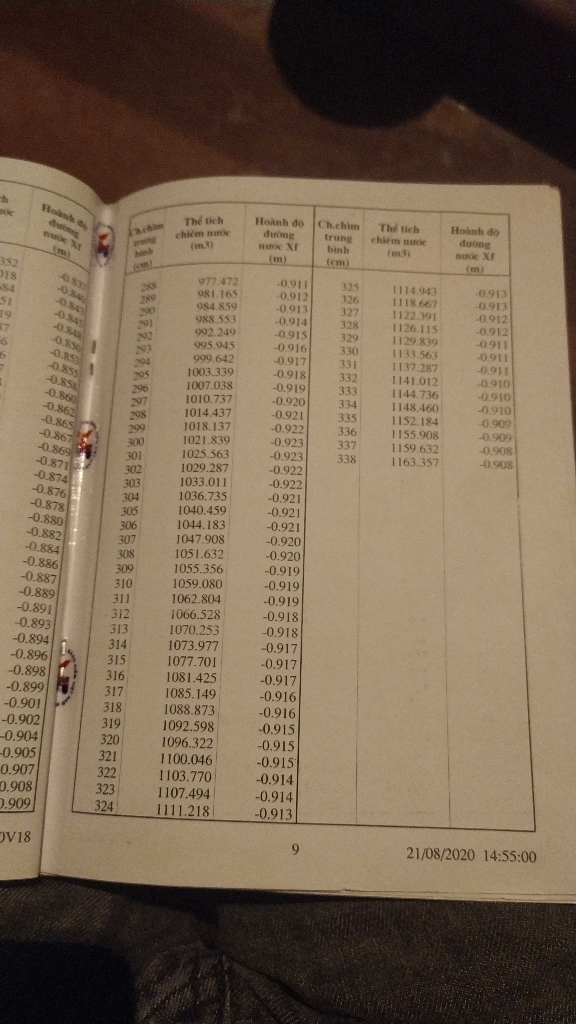 Hoành độ
đường
nước Xf
(m)
-0.860
-0.862
-0.865
-0.867
-0.869
-0.871
-0.874
-0.876
-0.878
-0.880
-0.882
-0.884
-0.886
-0.887
-0.889
-0.891
-0.893
-0.894
-0.896
-0.898
-0.899
-0.901
-0.902
-0.904
-0.905
0.907
0.908
0.909
0V18
Ch.chìm trung bình (cm) Thể tích chiếm nước (m3) Hoành độ đường nước Xf (m) Ch.chìm trung bình (cm) Thể tích chiếm nước (m3) Hoành độ đường nước Xf (m)
288 977.472 -0.911 325 1114.943 -0.913
289 981.165 -0.912 326 1118.667 -0.913
290 984.859 -0.913 327 1122.391 -0.912
291 988.553 -0.914 328 1126.115 -0.912
292 992.249 -0.915 329 1129.839 -0.911
293 995.945 -0.916 330 1133.563 -0.911
294 999.642 -0.917 331 1137.287 -0.911
295 1003.339 -0.918 332 1141.012 -0.910
296 1007.038 -0.919 333 1144.736 -0.910
297 1010.737 -0.920 334 1148.460 -0.910
298 1014.437 -0.921 335 1152.184 -0.909
299 1018.137 -0.922 336 1155.908 -0.909
300 1021.839 -0.923 337 1159.632 -0.908
301 1025.563 -0.923 338 1163.357 -0.908
302 1029.287 -0.922
303 1033.011 -0.922
304 1036.735 -0.921
305 1040.459 -0.921
306 1044.183 -0.921
307 1047.908 -0.920
308 1051.632 -0.920
309 1055.356 -0.919
310 1059.080 -0.919
311 1062.804 -0.919
312 1066.528 -0.918
313 1070.253 -0.918
314 1073.977 -0.917
315 1077.701 -0.917
316 1081.425 -0.917
317 1085.149 -0.916
318 1088.873 -0.916
319 1092.598 -0.915
320 1096.322 -0.915
321 1100.046 -0.915
322 1103.770 -0.914
323 1107.494 -0.914
324 1111.218 -0.913
9
21/08/2020 14:55:00